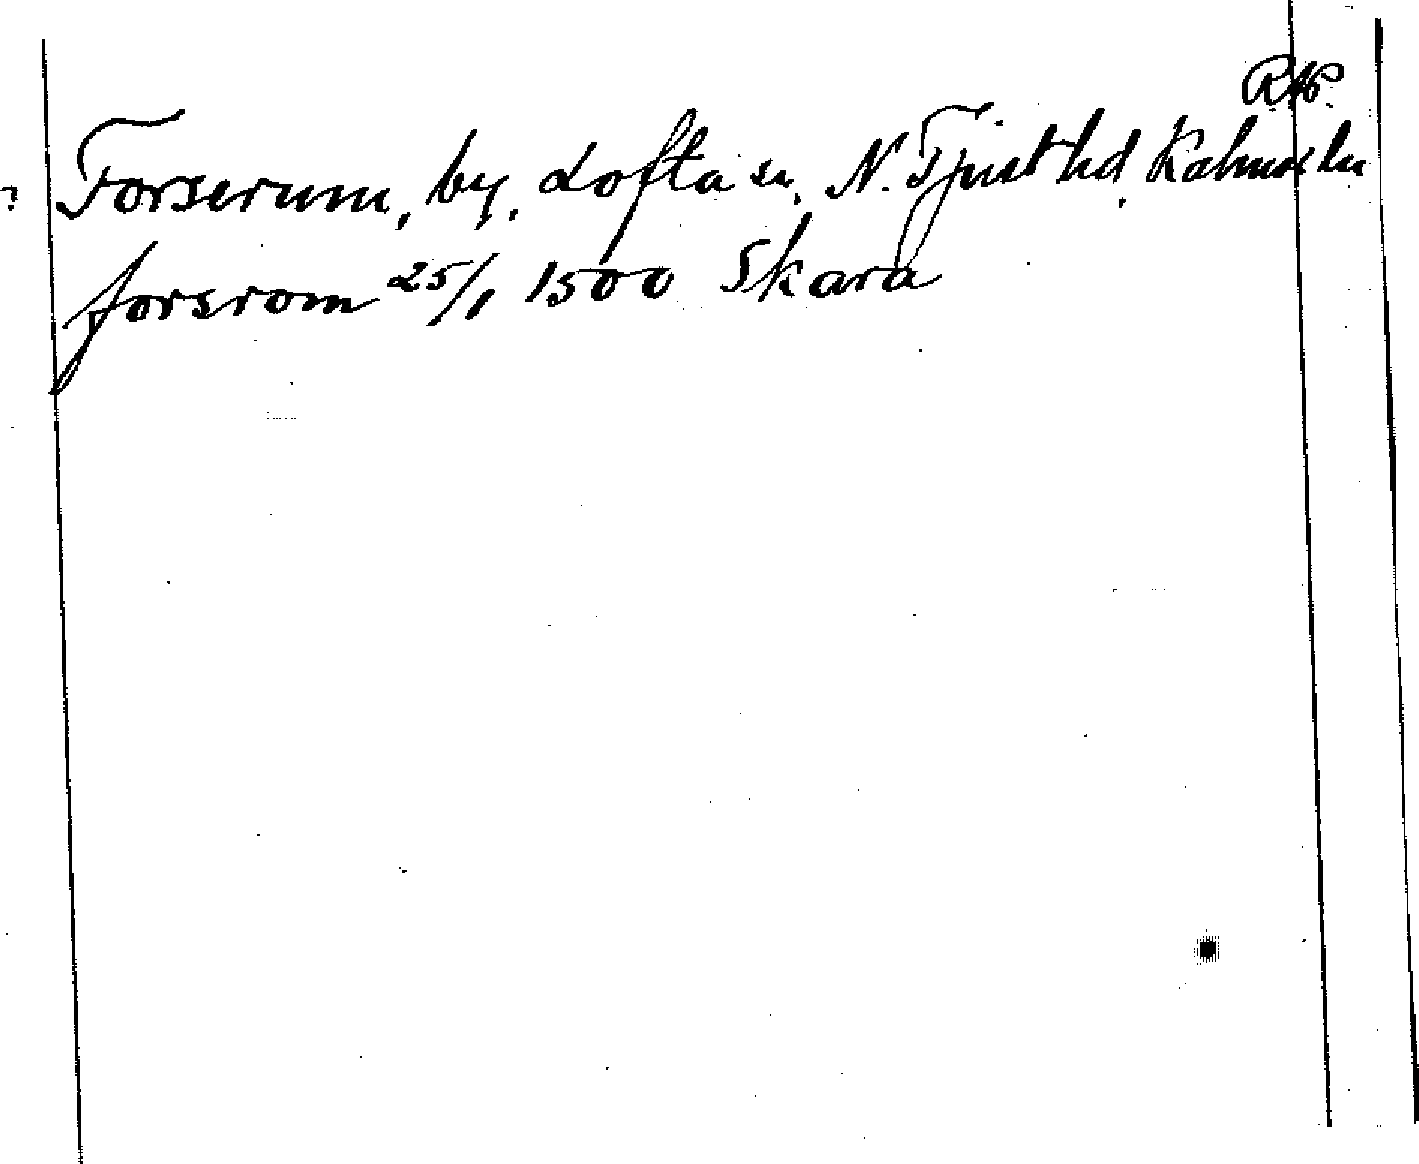 RAp
Forserum, by, Lofta sn, N. Tjust hd, Kalmar län
forsrom 25/1 1500 Skara